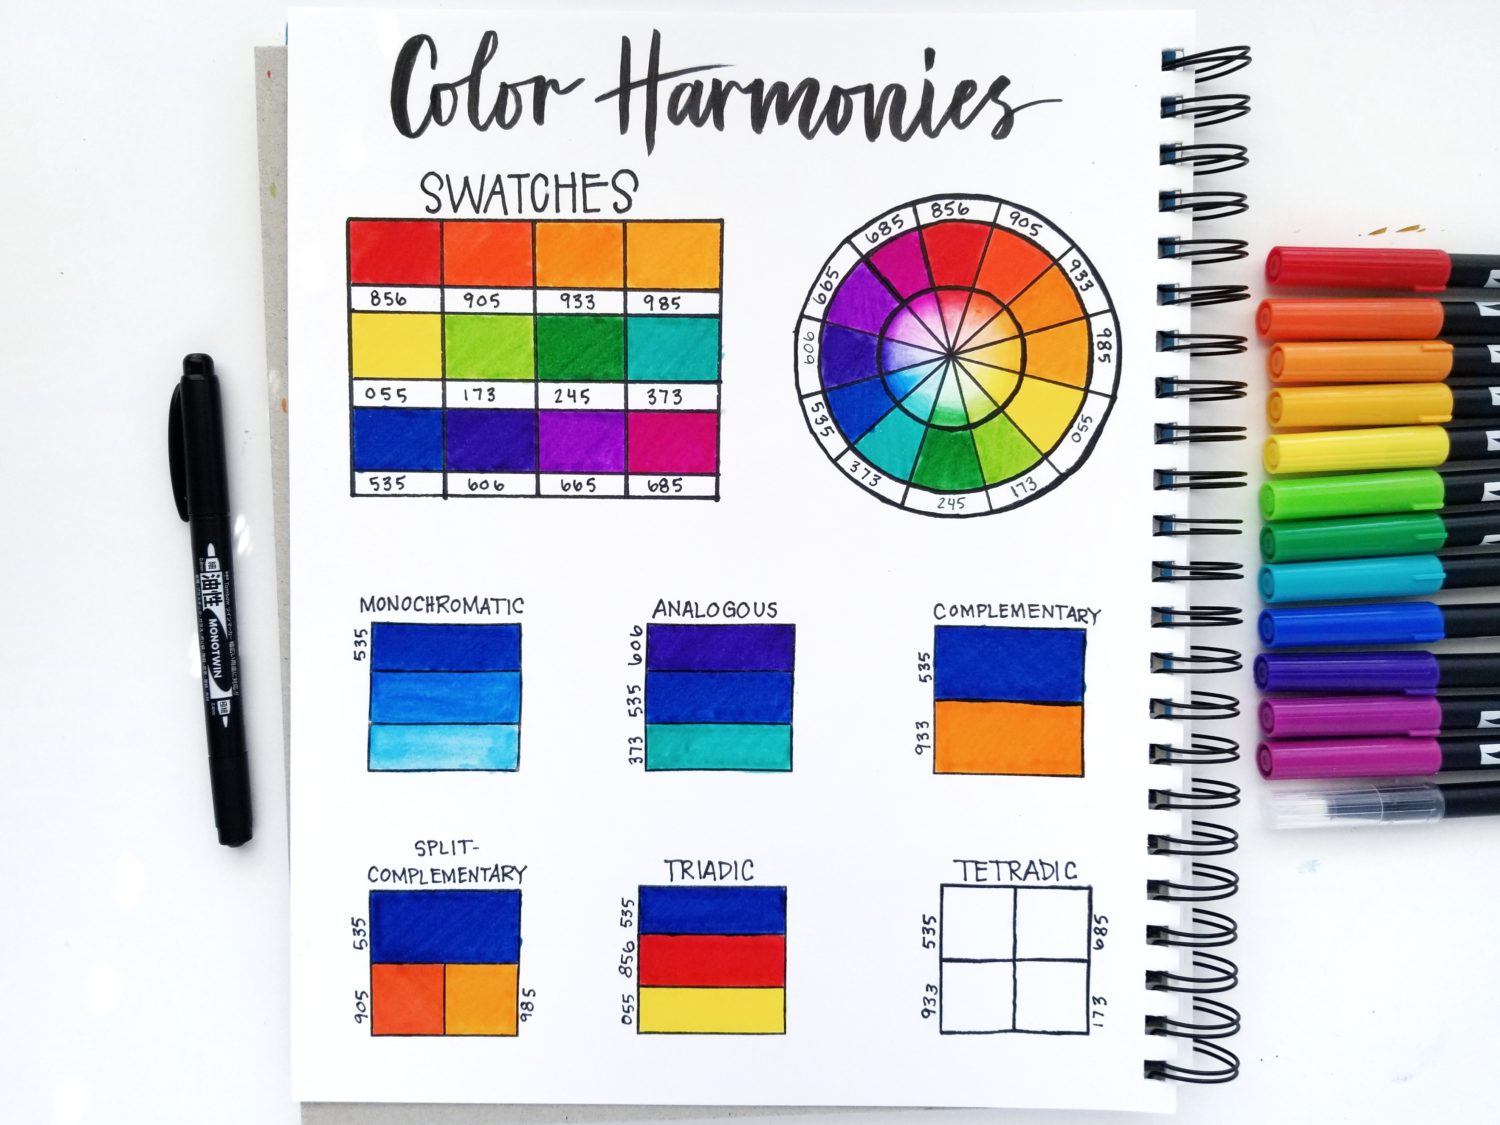 Color Harmonies
SWATCHES
856 905 933 985
055 173 245 373
535 606 665 685
856
905
933
985
055
173
245
373
535
606
665
685
MONOCHROMATIC
535
ANALOGOUS
606
535
373
COMPLEMENTARY
535
933
SPLIT-
COMPLEMENTARY
535
905
985
TRIADIC
535
856
055
TETRADIC
535
685
933
173
油性
MONOTWIN